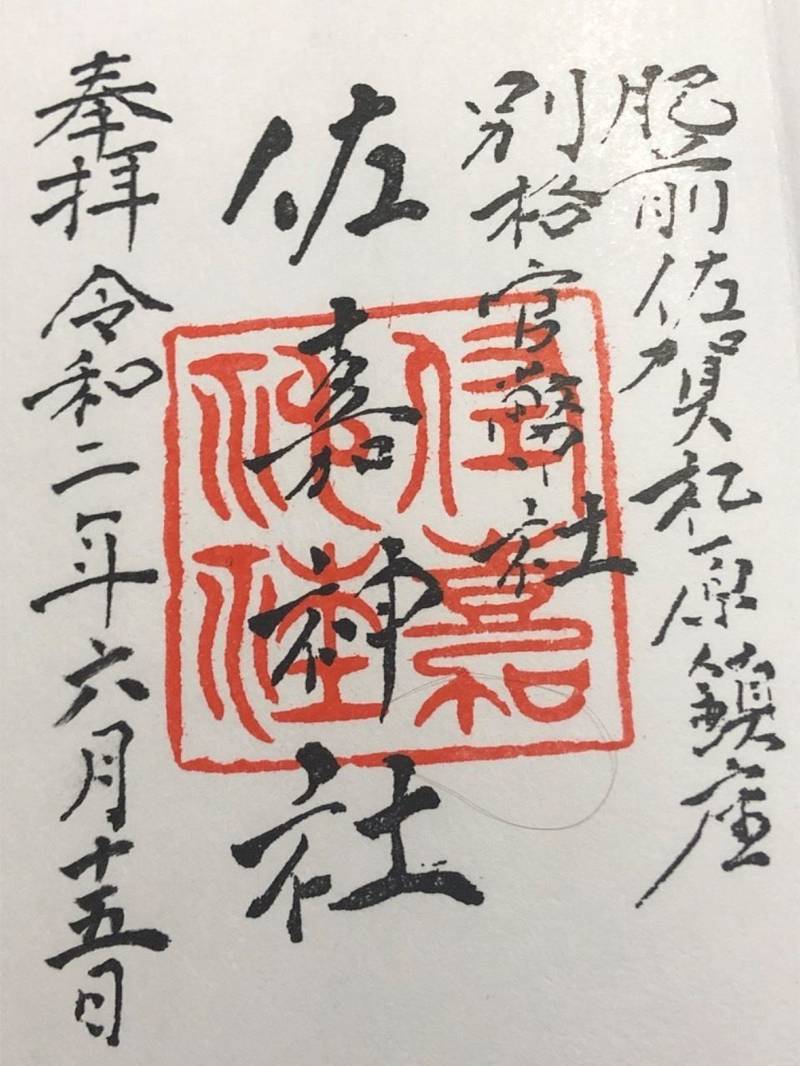 肥前佐賀松原鎮座
別格官幣社
佐嘉神社
佐嘉神社
奉拝 令和二年六月十五日